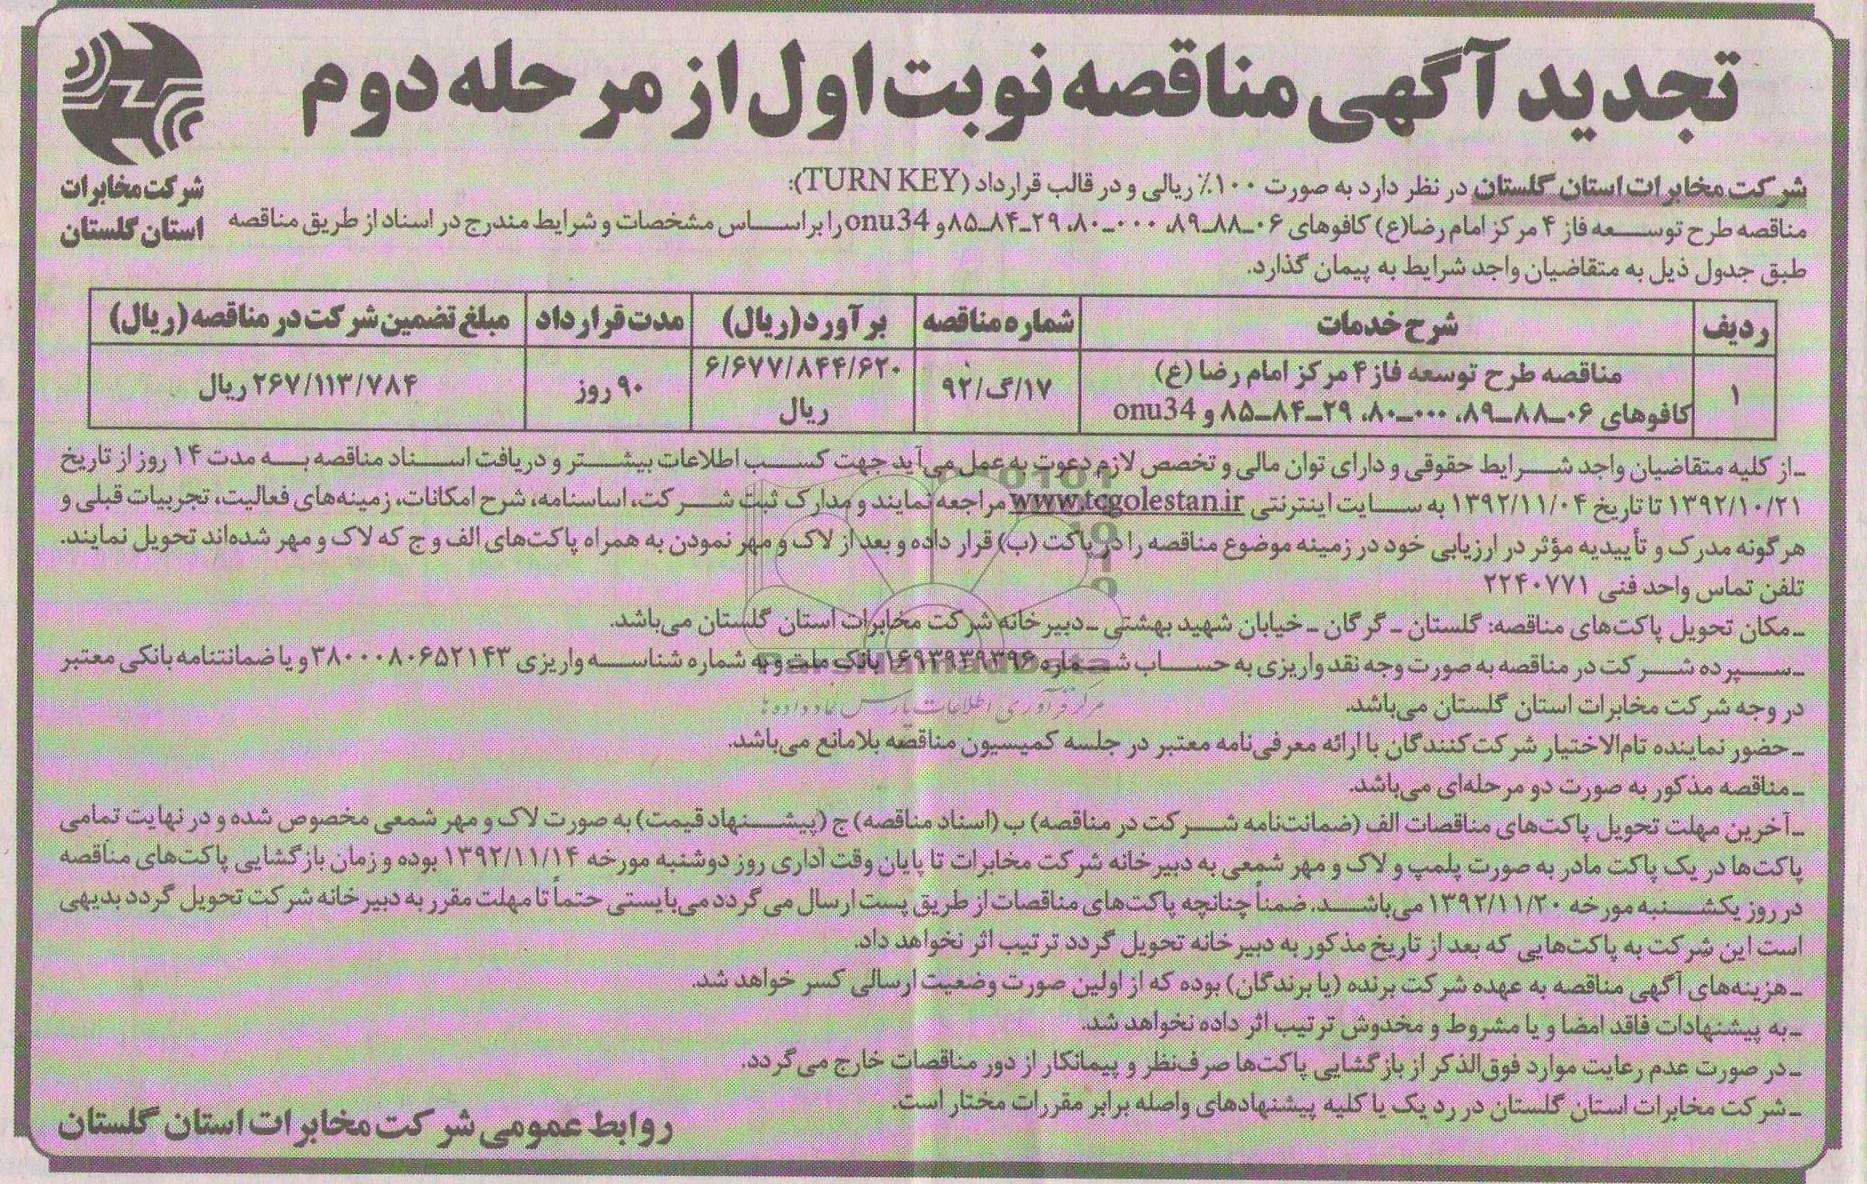 تجدید آگهی مناقصه نوبت اول از مرحله دوم
شرکت مخابرات
استان گلستان
شرکت مخابرات استان گلستان در نظر دارد به صورت ۱۰۰٪ ریالی و در قالب قرارداد (TURN KEY):
مناقصه طرح توسعه فاز ۴ مرکز امام رضا(ع) کافوهای ۰۶ـ۸۸ـ۸۹، ۰۰۰ـ۸۰، ۲۹ـ۸۴ـ۸۵ و onu34 را براساس مشخصات و شرایط مندرج در اسناد از طریق مناقصه
طبق جدول ذیل به متقاضیان واجد شرایط به پیمان گذارد.
ردیف شرح خدمات شماره مناقصه برآورد (ریال) مدت قرارداد مبلغ تضمین شرکت در مناقصه (ریال)
۱ مناقصه طرح توسعه فاز ۴ مرکز امام رضا (ع) ۱۷/گ/۹۲ ۶/۶۷۷/۸۴۴/۶۲۰ ۹۰ روز ۲۶۷/۱۱۳/۷۸۴ ریال
کافوهای ۰۶ـ۸۸ـ۸۹، ۰۰۰ـ۸۰، ۲۹ـ۸۴ـ۸۵ و onu34 ریال
ـ از کلیه متقاضیان واجد شرایط حقوقی و دارای توان مالی و تخصص لازم دعوت به عمل می‌آید جهت کسب اطلاعات بیشتر و دریافت اسناد مناقصه به مدت ۱۴ روز از تاریخ
۱۳۹۲/۱۰/۲۱ تا تاریخ ۱۳۹۲/۱۱/۰۴ به سایت اینترنتی www.tcgolestan.ir مراجعه نمایند و مدارک ثبت شرکت، اساسنامه، شرح امکانات، زمینه‌های فعالیت، تجربیات قبلی و
هرگونه مدرک و تأییدیه مؤثر در ارزیابی خود در زمینه موضوع مناقصه را در پاکت (ب) قرار داده و بعد از لاک و مهر نمودن به همراه پاکت‌های الف و ج که لاک و مهر شده‌اند تحویل نمایند.
تلفن تماس واحد فنی ۲۲۴۰۷۷۱
ـ مکان تحویل پاکت‌های مناقصه: گلستان ـ گرگان ـ خیابان شهید بهشتی ـ دبیرخانه شرکت مخابرات استان گلستان می‌باشد.
ـ سپرده شرکت در مناقصه به صورت وجه نقد واریزی به حساب شماره ۱۶۹۳۹۳۹۳۹۶ بانک ملت و به شماره شناسه واریزی ۳۸۰۰۰۸۰۶۵۲۱۴۳ و یا ضمانتنامه بانکی معتبر
در وجه شرکت مخابرات استان گلستان می‌باشد.
ـ حضور نماینده تام‌الاختیار شرکت‌کنندگان با ارائه معرفی‌نامه معتبر در جلسه کمیسیون مناقصه بلامانع می‌باشد.
ـ مناقصه مذکور به صورت دو مرحله‌ای می‌باشد.
ـ آخرین مهلت تحویل پاکت‌های مناقصات الف (ضمانت‌نامه شرکت در مناقصه) ب (اسناد مناقصه) ج (پیشنهاد قیمت) به صورت لاک و مهر شمعی مخصوص شده و در نهایت تمامی
پاکت‌ها در یک پاکت مادر به صورت پلمپ و لاک و مهر شمعی به دبیرخانه شرکت مخابرات تا پایان وقت اداری روز دوشنبه مورخه ۱۳۹۲/۱۱/۱۴ بوده و زمان بازگشایی پاکت‌های مناقصه
در روز یکشنبه مورخه ۱۳۹۲/۱۱/۲۰ می‌باشد. ضمناً چنانچه پاکت‌های مناقصات از طریق پست ارسال می‌گردد می‌بایستی حتماً تا مهلت مقرر به دبیرخانه شرکت تحویل گردد بدیهی
است این شرکت به پاکت‌هایی که بعد از تاریخ مذکور به دبیرخانه تحویل گردد ترتیب اثر نخواهد داد.
ـ هزینه‌های آگهی مناقصه به عهده شرکت برنده (یا برندگان) بوده که از اولین صورت وضعیت ارسالی کسر خواهد شد.
ـ به پیشنهادات فاقد امضا و یا مشروط و مخدوش ترتیب اثر داده نخواهد شد.
ـ در صورت عدم رعایت موارد فوق‌الذکر از بازگشایی پاکت‌ها صرف‌نظر و پیمانکار از دور مناقصات خارج می‌گردد.
ـ شرکت مخابرات استان گلستان در رد یک یا کلیه پیشنهادهای واصله برابر مقررات مختار است.
روابط عمومی شرکت مخابرات استان گلستان
ParsNamadData
مرکز فرآوری اطلاعات پارس نماد داده ها